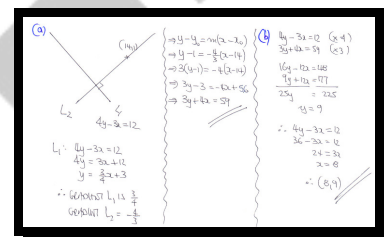 (a)
(14,1)
L₂
L₁
4y-3x=12
L₁: 4y-3x=12
4y = 3x+12
y = 3/4x+3
∴ GRADIENT L₁ IS 3/4
GRADIENT L₂ = -4/3
⇒ y-y₀=m(x-x₀)
⇒ y-1=-4/3(x-14)
⇒ 3(y-1)=-4(x-14)
⇒ 3y-3=-4x+56
⇒ 3y+4x=59
(b)
4y-3x=12 (×4)
3y+4x=59 (×3)
16y-12x=48
9y+12x=177
25y = 225
y=9
∴ 4y-3x=12
36-3x=12
24=3x
x=8
∴ (8,9)